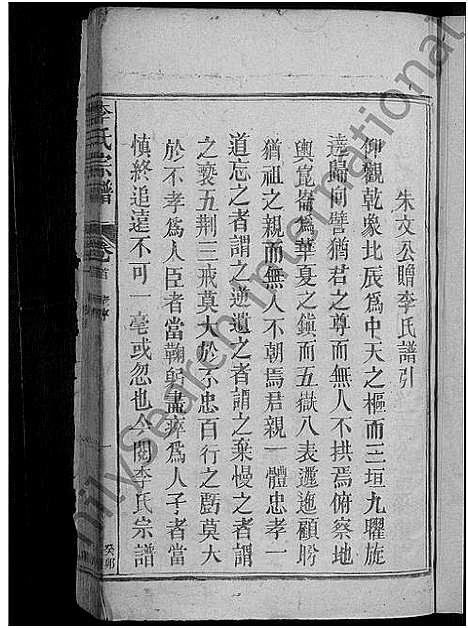 朱文公贈李氏譜引
仰觀乾象北辰爲中天之樞而三垣九曜旋
遶歸向譬猶君之尊而無人不拱焉俯察地
輿崑崙爲華夏之鎭而五嶽八表邐迤顧盻
猶祖之親而無人不朝焉君親一體忠孝一
道忘之者謂之逆遺之者謂之棄慢之者謂
之褻五荆三戒莫大於不忠百行之虧莫大
於不孝爲人臣者當鞠躬盡瘁爲人子者當
慎終追遠不可一毫或忽也今閱李氏宗譜
李氏宗譜
卷首
一
癸卯
FamilySearch International